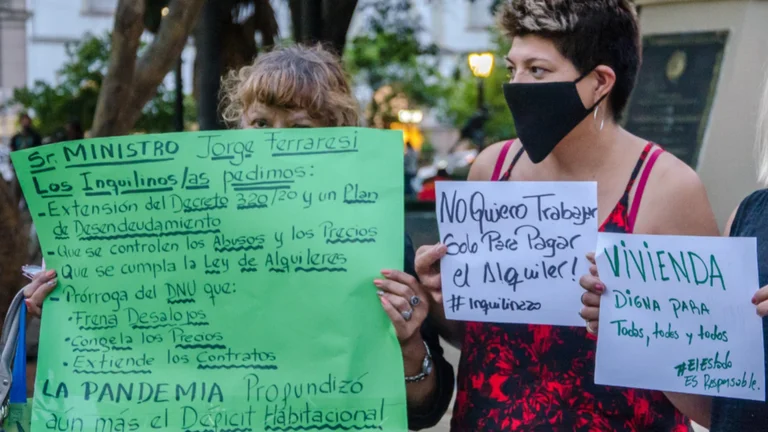 Sr. MINISTRO Jorge Ferraresi
Los Inquilinos/as pedimos:
-Extensión del Decreto 320/20 y un Plan
de Desendeudamiento
-Que se controlen los Abusos y los Precios
-Que se cumpla la Ley de Alquileres
-Prórroga del DNU que:
•Frena Desalojos
•Congela los Precios
•Extiende los Contratos
LA PANDEMIA Profundizó
aún más el Déficit Habitacional
NO Quiero Trabajar
Solo Para Pagar
el Alquiler!
#Inquilinazo
VIVIENDA
Digna para
Todas, todes y todos
#ElEstado
es Responsable.